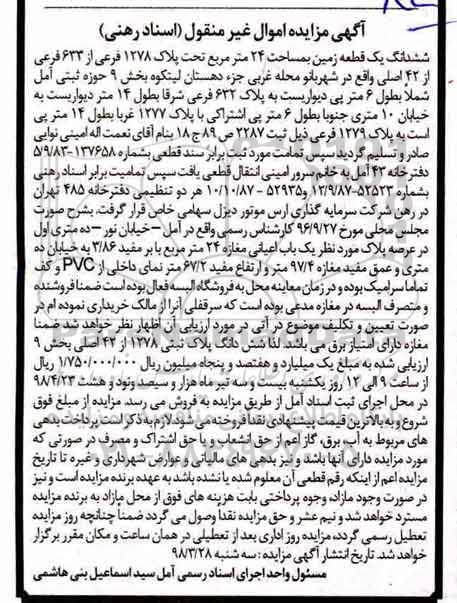 آگهی مزایده اموال غیر منقول (اسناد رهنی)
ششدانگ یک قطعه زمین بمساحت ۲۴ متر مربع تحت پلاک ۱۲۷۸ فرعی از ۶۳۳ فرعی
از ۴۲ اصلی واقع در شهربانو محله غربی جزء دهستان لیتکوه بخش ۹ حوزه ثبتی آمل
شمالا بطول ۶ متر پی دیواریست به پلاک ۶۳۲ فرعی شرقا بطول ۱۴ متر دیواریست به
خیابان ۱۰ متری جنوبا بطول ۶ متر پی اشتراکی با پلاک ۱۲۷۷ غربا بطول ۱۴ متر پی
است به پلاک ۱۲۷۹ فرعی ذیل ثبت ۲۲۸۷ ص ۸۹ ج ۱۸ بنام آقای نعمت اله امینی نوایی
صادر و تسلیم گردید سپس تمامت مورد ثبت برابر سند قطعی بشماره ۱۳۷۶۵۸-۵/۹/۸۳
دفترخانه ۴۳ آمل به خانم سرور امینی انتقال قطعی یافت سپس تمامیت برابر اسناد رهنی
بشماره ۵۲۵۲۳-۱۲/۹/۸۷ و ۵۲۹۳۵ - ۱۰/۱۰/۸۷ هر دو تنظیمی دفترخانه ۴۸۵ تهران
در رهن شرکت سرمایه گذاری ارس موتور دیزل سهامی خاص قرار گرفت. بشرح صورت
مجلس محلی مورخ ۹۶/۹/۲۷ کارشناس رسمی واقع در آمل – خیابان نور – ده متری اول
در عرصه پلاک مورد نظر یک باب اعیانی مغازه ۲۴ متر مربع با بر مفید ۳/۸۶ به خیابان ده
متری و عمق مفید مغازه ۹۷/۴ متر و ارتفاع مفید ۶۷/۲ متر نمای داخلی از PVC و کف
تماما سرامیک بوده و در زمان معاینه محل به فروشگاه البسه فعال بوده است ضمنا فروشنده
و متصرف البسه در مغازه مدعی بوده است که سرقفلی آنرا از مالک خریداری نموده ام در
صورت تعیین و تکلیف موضوع در آتی در مورد ارزیابی آن اظهار نظر خواهد شد ضمنا
مغازه دارای امتیاز برق می باشد. لذا شش دانگ پلاک ثبتی ۱۲۷۸ از ۴۲ اصلی بخش ۹
ارزیابی شده به مبلغ یک میلیارد و هفتصد و پنجاه میلیون ریال ۱/۷۵۰/۰۰۰/۰۰۰ ریال
از ساعت ۹ الی ۱۲ روز یکشنبه بیست و سه تیر ماه هزار و سیصد و نود و هشت ۹۸/۴/۲۳
در محل اجرای ثبت اسناد آمل از طریق مزایده به فروش می رسد. مزایده از مبلغ فوق
شروع و به بالاترین قیمت پیشنهادی نقدا فروخته می شود. لازم به ذکر است پرداخت بدهی
های مربوط به آب، برق، گاز اعم از حق انشعاب و یا حق اشتراک و مصرف در صورتی که
مورد مزایده دارای آنها باشد و نیز بدهی های مالیاتی و عوارض شهرداری و غیره تا تاریخ
مزایده اعم از اینکه رقم قطعی آن معلوم شده یا نشده باشد به عهده برنده مزایده است و نیز
در صورت وجود مازاد، وجوه پرداختی بابت هزینه های فوق از محل مازاد به برنده مزایده
مسترد خواهد شد و نیم عشر و حق مزایده نقدا وصول می گردد ضمنا چنانچه روز مزایده
تعطیل رسمی گردد، مزایده روز اداری بعد از تعطیلی در همان ساعت و مکان مقرر برگزار
خواهد شد. تاریخ انتشار آگهی مزایده : سه شنبه ۹۸/۳/۲۸
مسئول واحد اجرای اسناد رسمی آمل سید اسماعیل بنی هاشمی